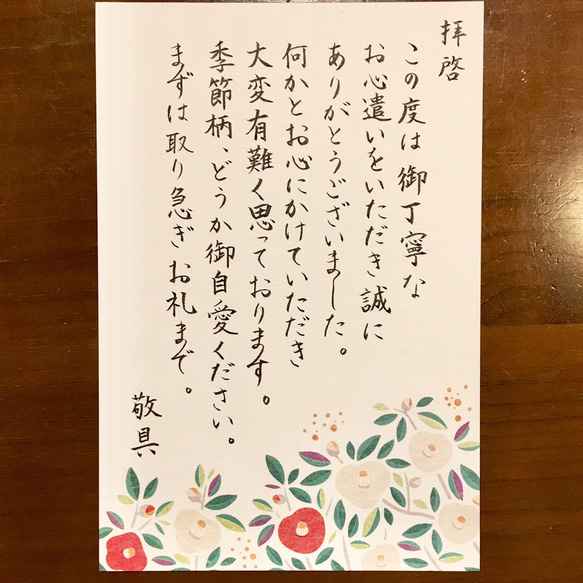 拝啓
この度は御丁寧な
お心遣いをいただき誠に
ありがとうございました。
何かとお心にかけていただき
大変有難く思っております。
季節柄、どうか御自愛ください。
まずは取り急ぎお礼まで。
敬具